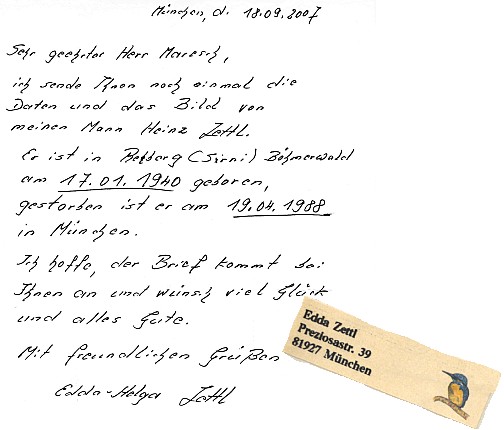 München, d. 18.09.2007
Sehr geehrter Herr Maresch,
ich sende Ihnen noch einmal die
Daten und das Bild von
meinen Mann Heinz Zettl.
Er ist in Rehberg (Srni) Böhmerwald
am 17.01.1940 geboren,
gestorben ist er am 19.04.1988
in München.
Ich hoffe, der Brief kommt bei
Ihnen an und wünsch viel Glück
und alles Gute.
Mit freundlichen Grüßen
Edda-Helga Zettl
Edda Zettl
Preziosastr. 39
81927 München